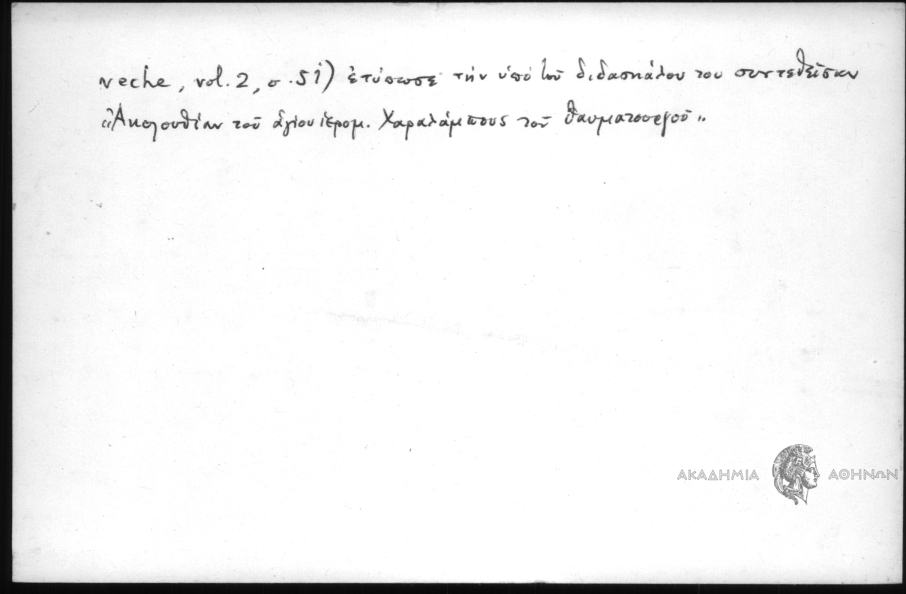 veche, vol. 2, σ. 51) ἐτύπωσε τὴν ὑπό τοῦ διδασκάλου του συντεθεῖσαν
«Ἀκολουθίαν τοῦ ἁγίου ἱερομ. Χαραλάμπους τοῦ θαυματουργοῦ».
ΑΚΑΔΗΜΙΑ ΑΘΗΝΩΝ